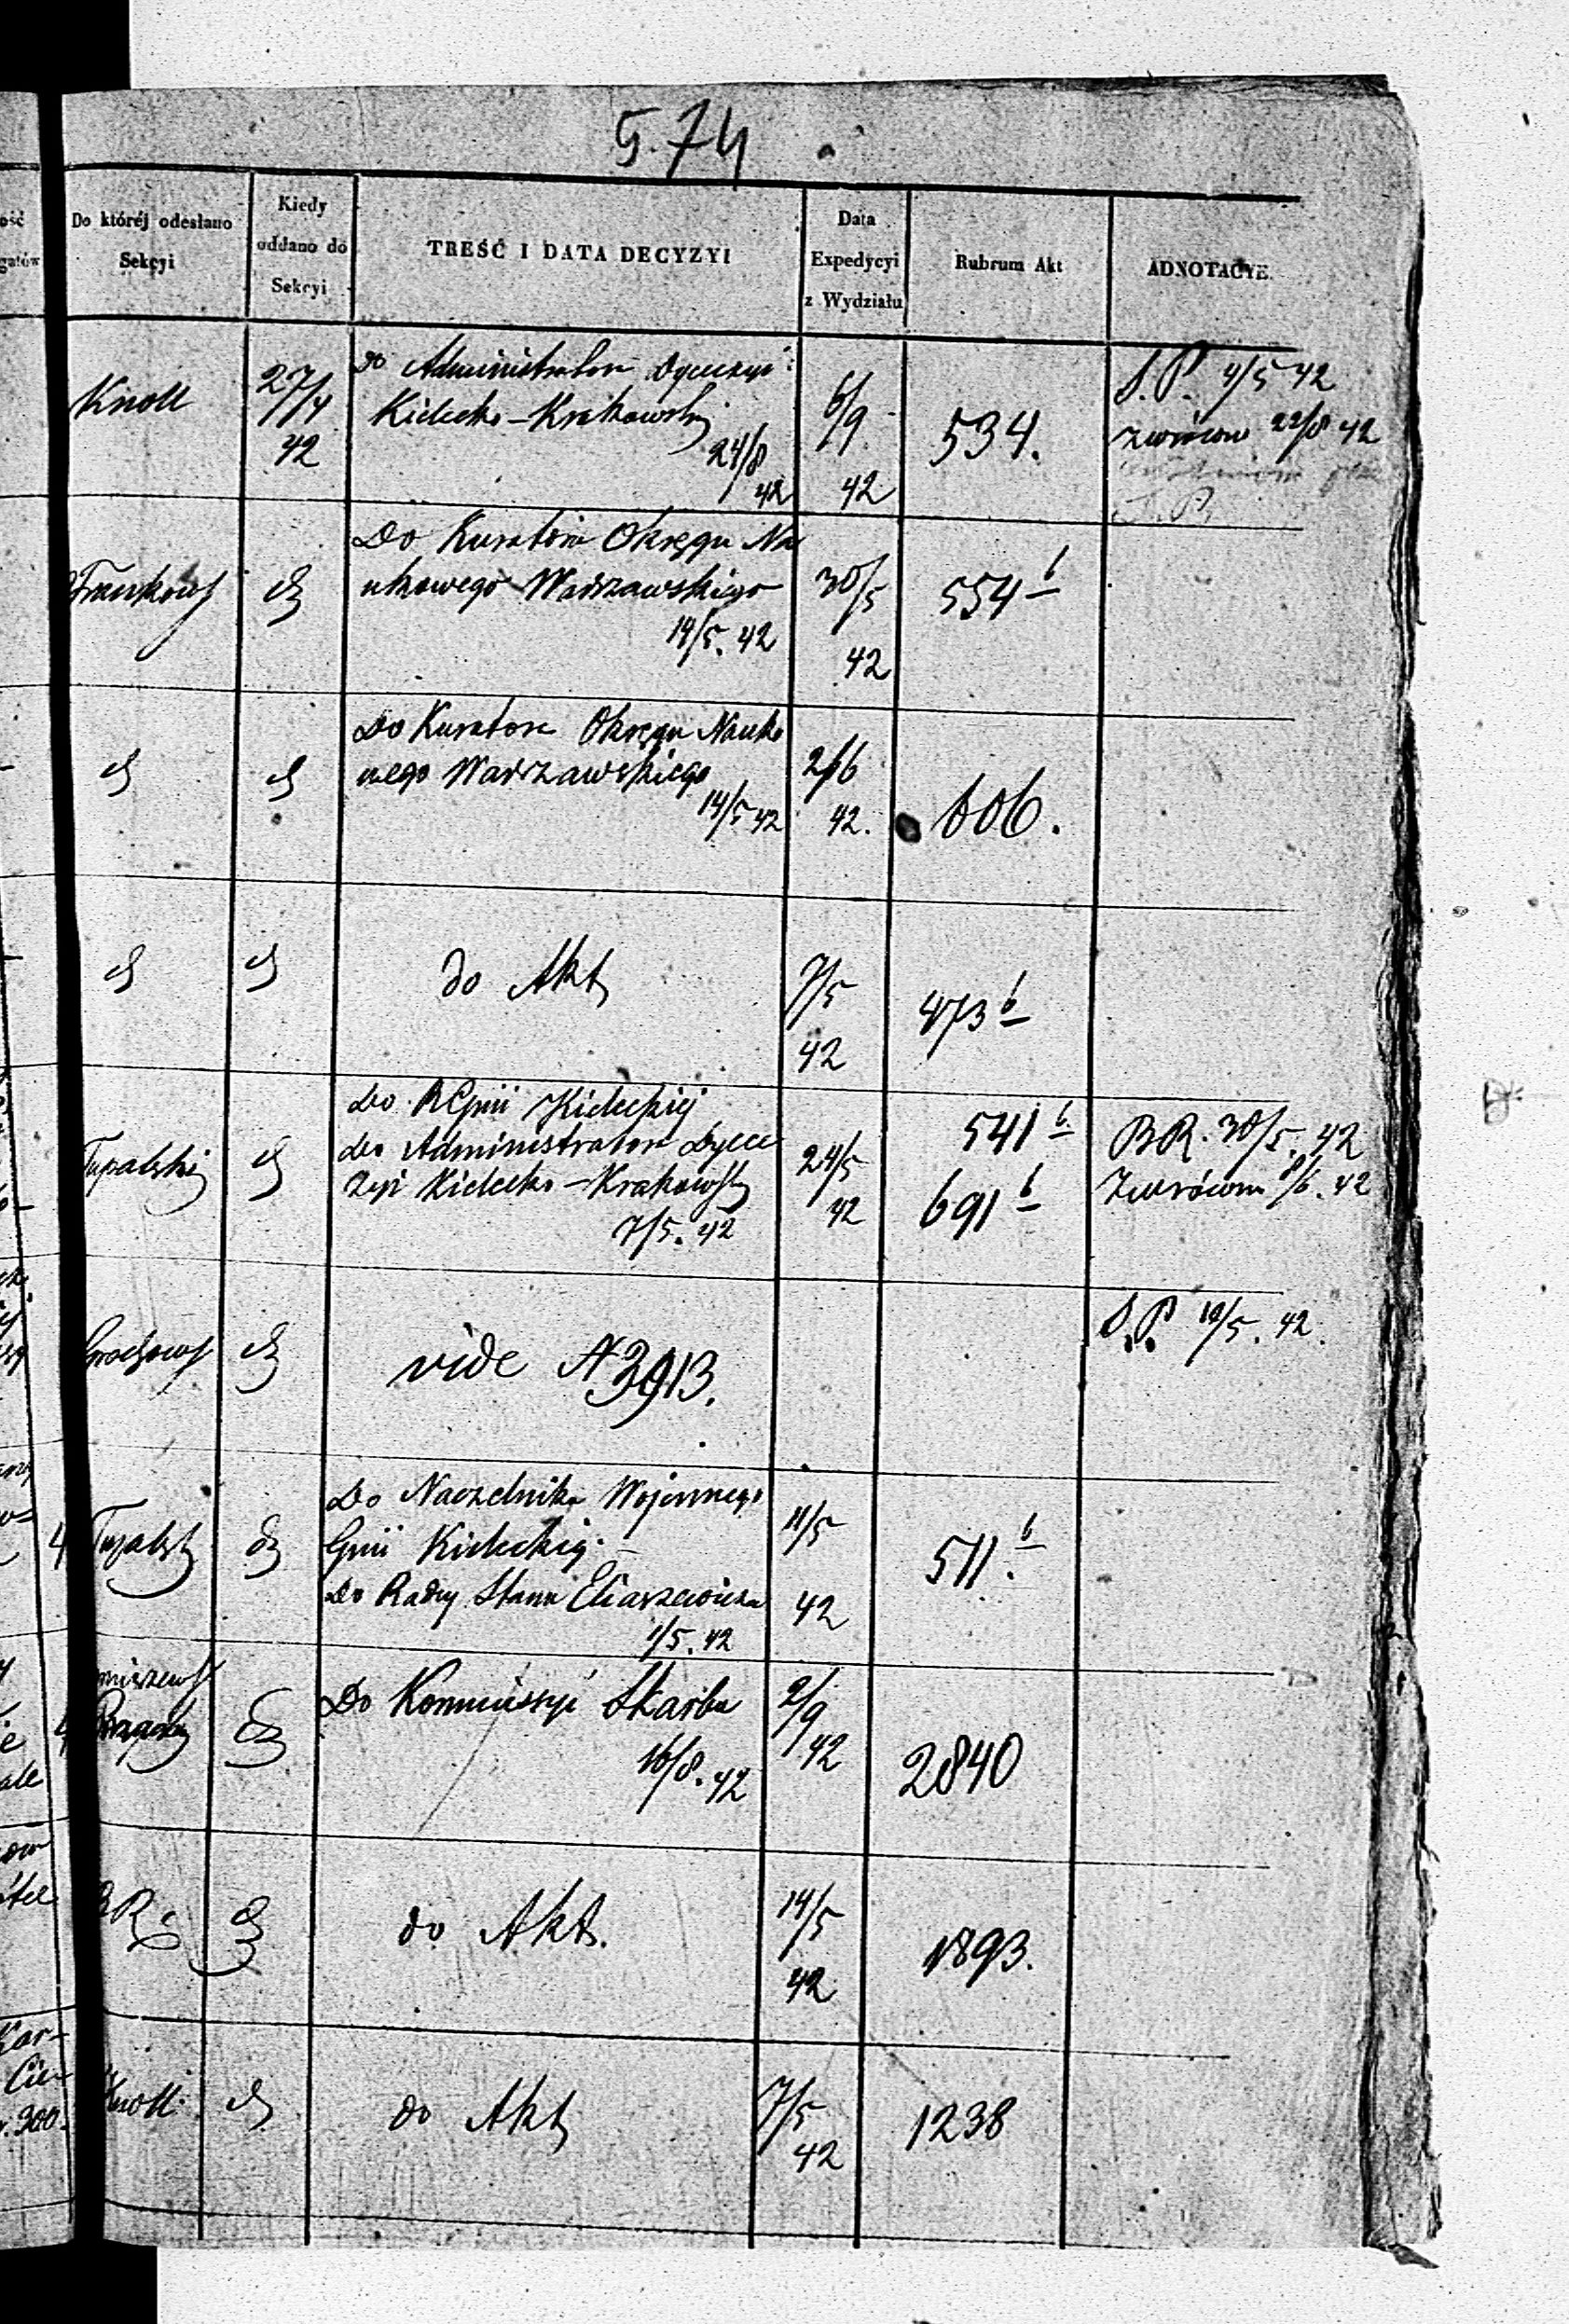 5.74
Do któréj odesłano Sekcyi
Kiedy oddano do Sekcyi
TREŚĆ I DATA DECYZYI
Data Expedycyi z Wydziału
Rubrum Akt
ADNOTACYE.
Knoll
27/4 42
do Administratora Dyecezyi
Kielecko-Krakowskiej
24/8 42
6/9 42
534.
S.P. 4/5 42
zwrócono 22/8 42
Frankows
Do Kuratora Okręgu Na
ukowego Warszawskiego
19/5. 42
30/5 42
554 b
Do Kuratora Okręgu Nauko
wego Warszawskiego
14/5 42
2/6 42.
606.
do Akt
7/5 42
473 b
Tupalski
do RGnii Kieleckiej
do Administratora Dyece
zyi Kielecko-Krakowsk
7/5. 42
24/5 42
541 b.
691 b
BR. 30/5. 42
Zwrócono 8/6. 42
Grochows
vide N 3913.
S.P. 10/5. 42.
Tupalsk
Do Naczelnika Wojennego
Gnii Kieleckiej.
Do Radcy Stanu Eliaszewicza
1/5. 42
11/5 42
511. b
Do Kommissyi Skarbu
16/8. 42
2/9 42
2840
BR.
do Akt.
14/5 42
1893.
Knoll.
do Akt
7/5 42
1238